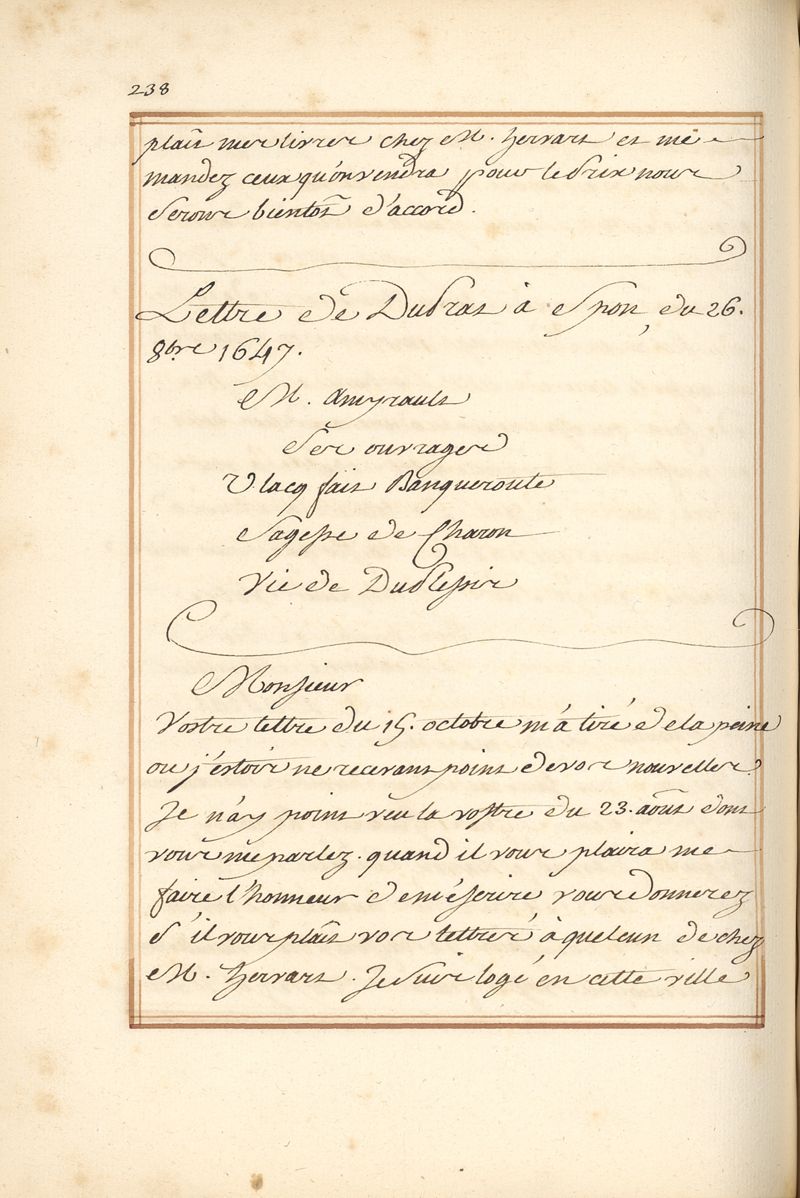 238
plaît mes livres chez M. Hervart et me
mandez ceux qu'on vendra pour le prix nous
serons bientost d'accord.
Lettre de Duprat à Spon, du 26.
8bre 1647.
M. Amyrault
Ses ouvrages
Vlacq fait Banqueroute
Sagesse de Charon
Vie de Duplessis
Monsieur
Vostre lettre du 15. octobre m'a tiré de la peine
ou j'estois ne recevant point de vos nouvelles.
Je n'ay point veu la vostre du 23. aoust dont
vous me parlez. quand il vous plaira me
faire l'honneur de m'éscrire vous donnerez
s'il vous plaît vos lettres à quelcun de chez
M. Hervart. Je suis logé en cette ville